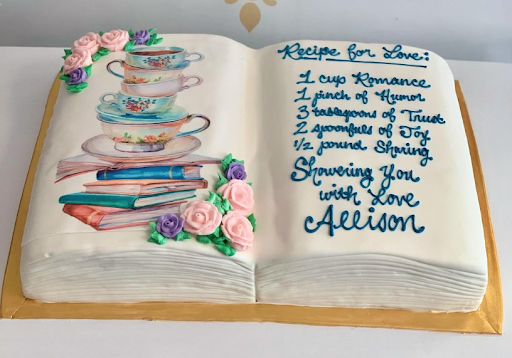 Recipe for Love:
1 cup Romance
1 pinch of Humor
3 tablespoons of Trust
2 spoonfuls of Joy
1/2 pound Sharing
Showering You
with Love
Allison